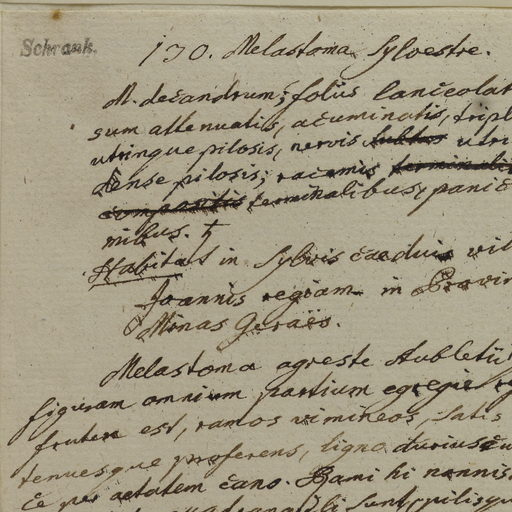 Schrank.
130. Melastoma Sylvestre.
M. decandrum; foliis lanceolat
sum attenuatis, acuminatis, tripl
utrinque pilosis, nervis subtus utri
dense pilosis; racemis terminalib
compositis terminalibus, panic
mibus. †
Habitat in Sylvis caeduis vi
Joannis regiam in Provin
Minas Geraës.
Melastoma agreste Aubletii
figuram omnium partium egregie
frutex est, ramos vimineos, satis
tenuesque proferens, ligno durius
per aetatem cano. Rami hi nonnis
sunt, pilisqu